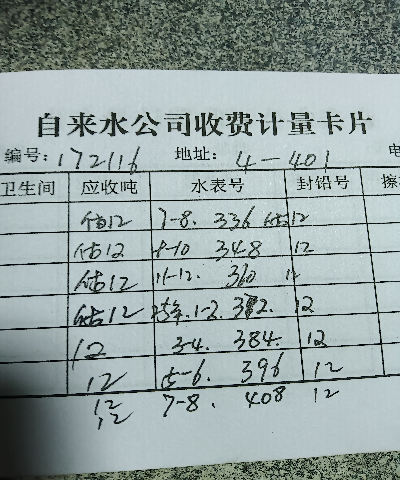 自来水公司收费计量卡片
编号: 172116 地址: 4-401 电
卫生间 应收吨 水表号 封铅号 擦
估12 7-8. 336 估12
估12 9-10 348 12
估12 11-12. 360 12
估12 25年.1-2. 372. 12
12 3-4. 384. 12
12 5-6. 396 12
12 7-8. 408 12
12